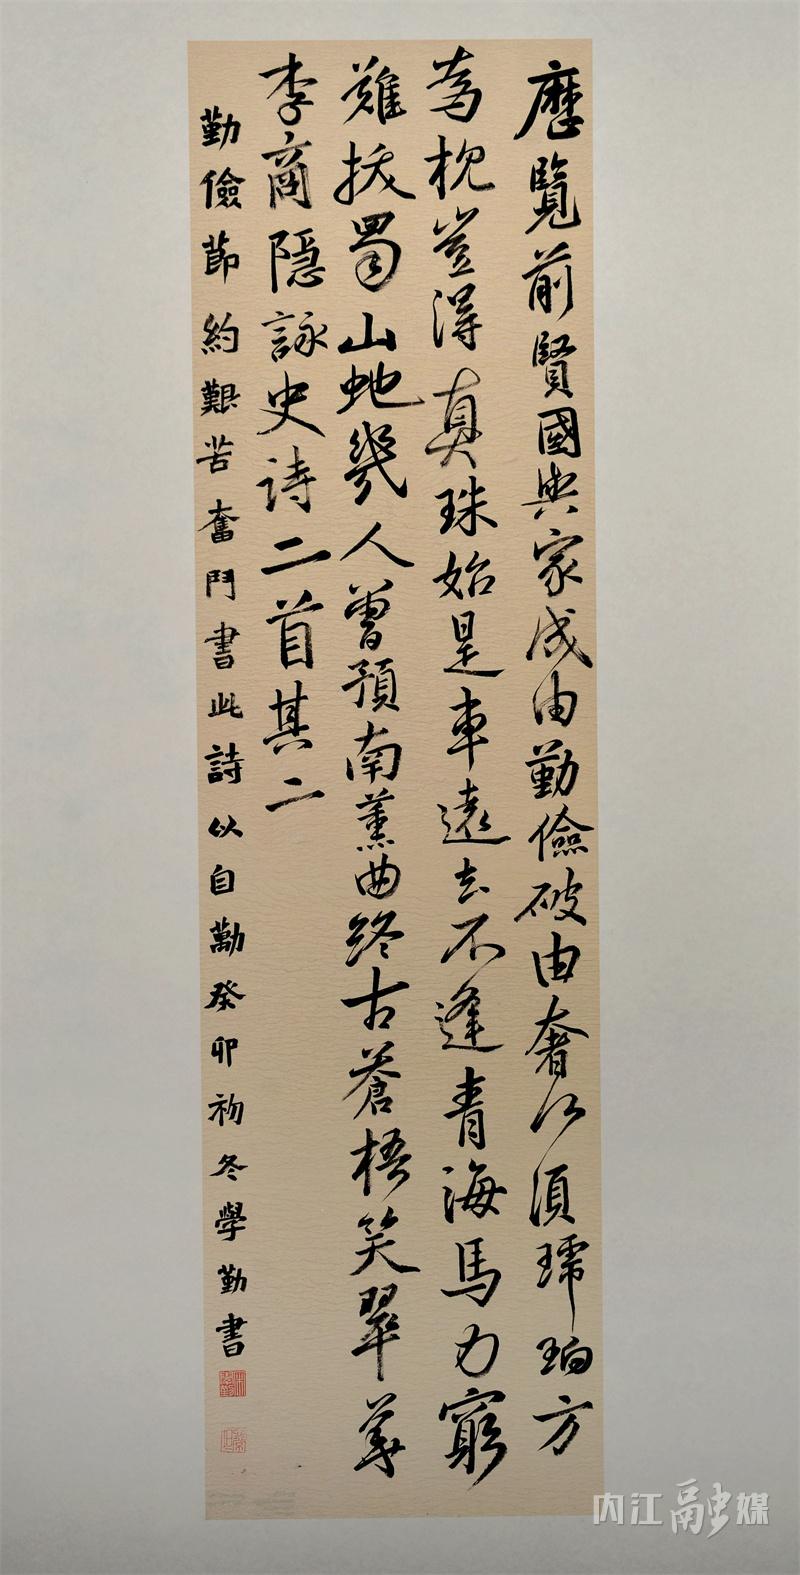 歷覽前賢國與家成由勤儉破由奢何須琥珀方
為枕豈得真珠始是車遠去不逢青海馬力窮
難拔蜀山蛇幾人曾預南薰曲終古蒼梧哭翠華
李商隱詠史詩二首其二
勤儉節約艱苦奮鬥書此詩以自勵癸卯初冬學勤書
内江融媒